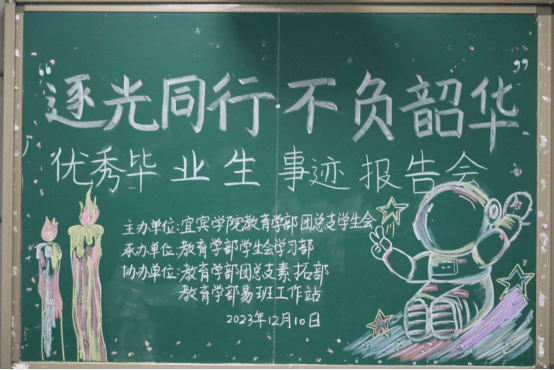 “逐光同行 不负韶华”
优秀毕业生事迹报告会
主办单位:宜宾学院教育学部团总支学生会
承办单位:教育学部学生会学习部
协办单位:教育学部团总支素拓部
教育学部易班工作站
2023年12月10日